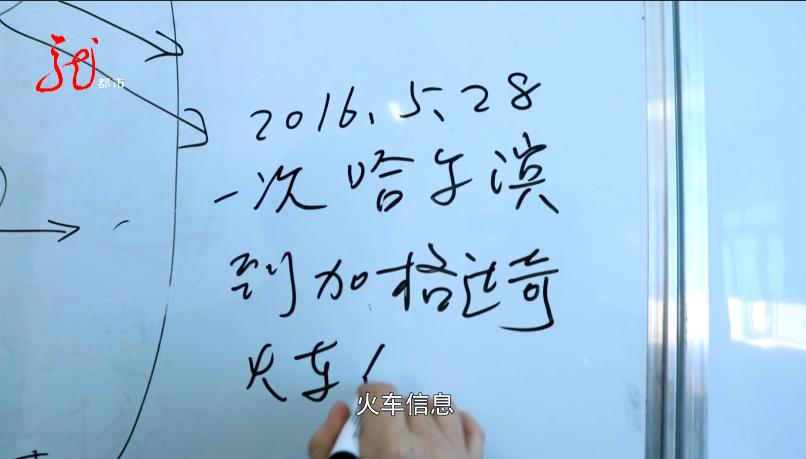 龙
都市
2016.5.28
一次哈尔滨
到加格达奇
火车
火车信息